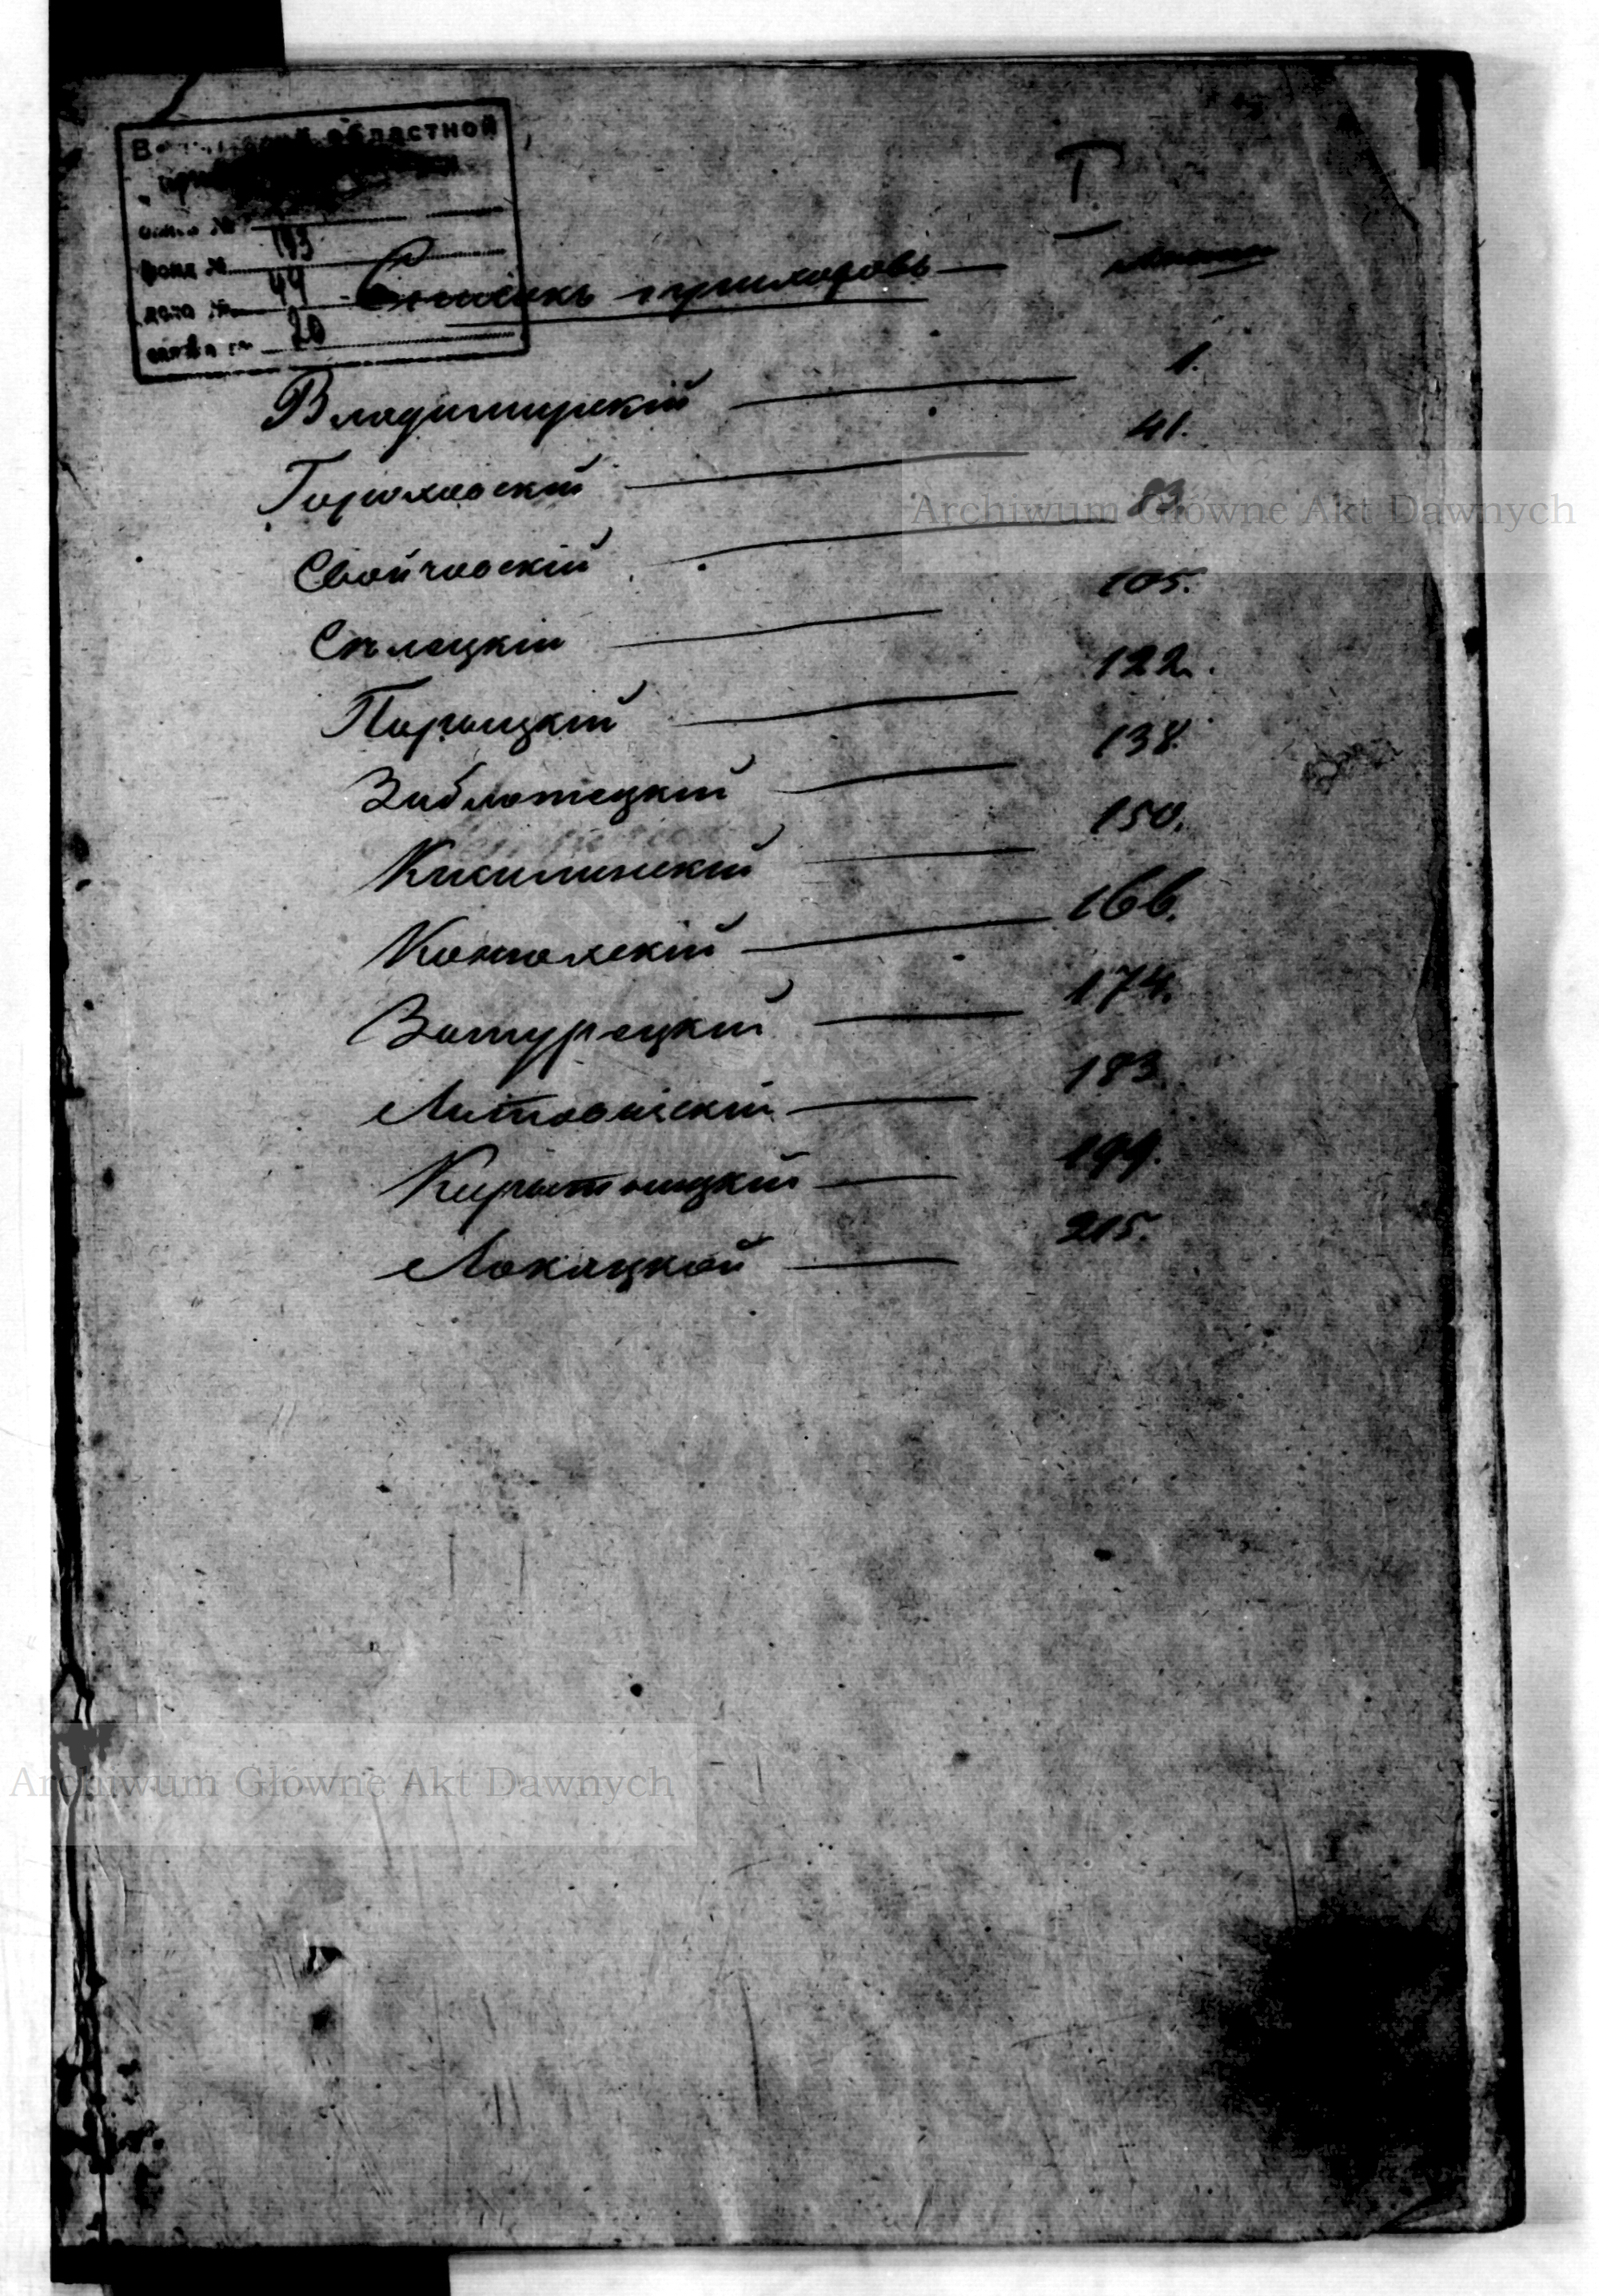 областной
I.
фонд №
193
дело №
44
20
Списокъ приходовъ —
Владимирскій — 1.
Гороховскій — 41.
Свойчовскій — 83.
Сѣлецкій — 105.
Порыцкій — 122.
Заблотецкій — 138.
Киселинскій — 150.
Контолскій — 166.
Затурецкій — 174.
Литовижскій — 183.
Корытницкій — 199.
Локацкой — 215.
Archiwum Główne Akt Dawnych
Archiwum Główne Akt Dawnych